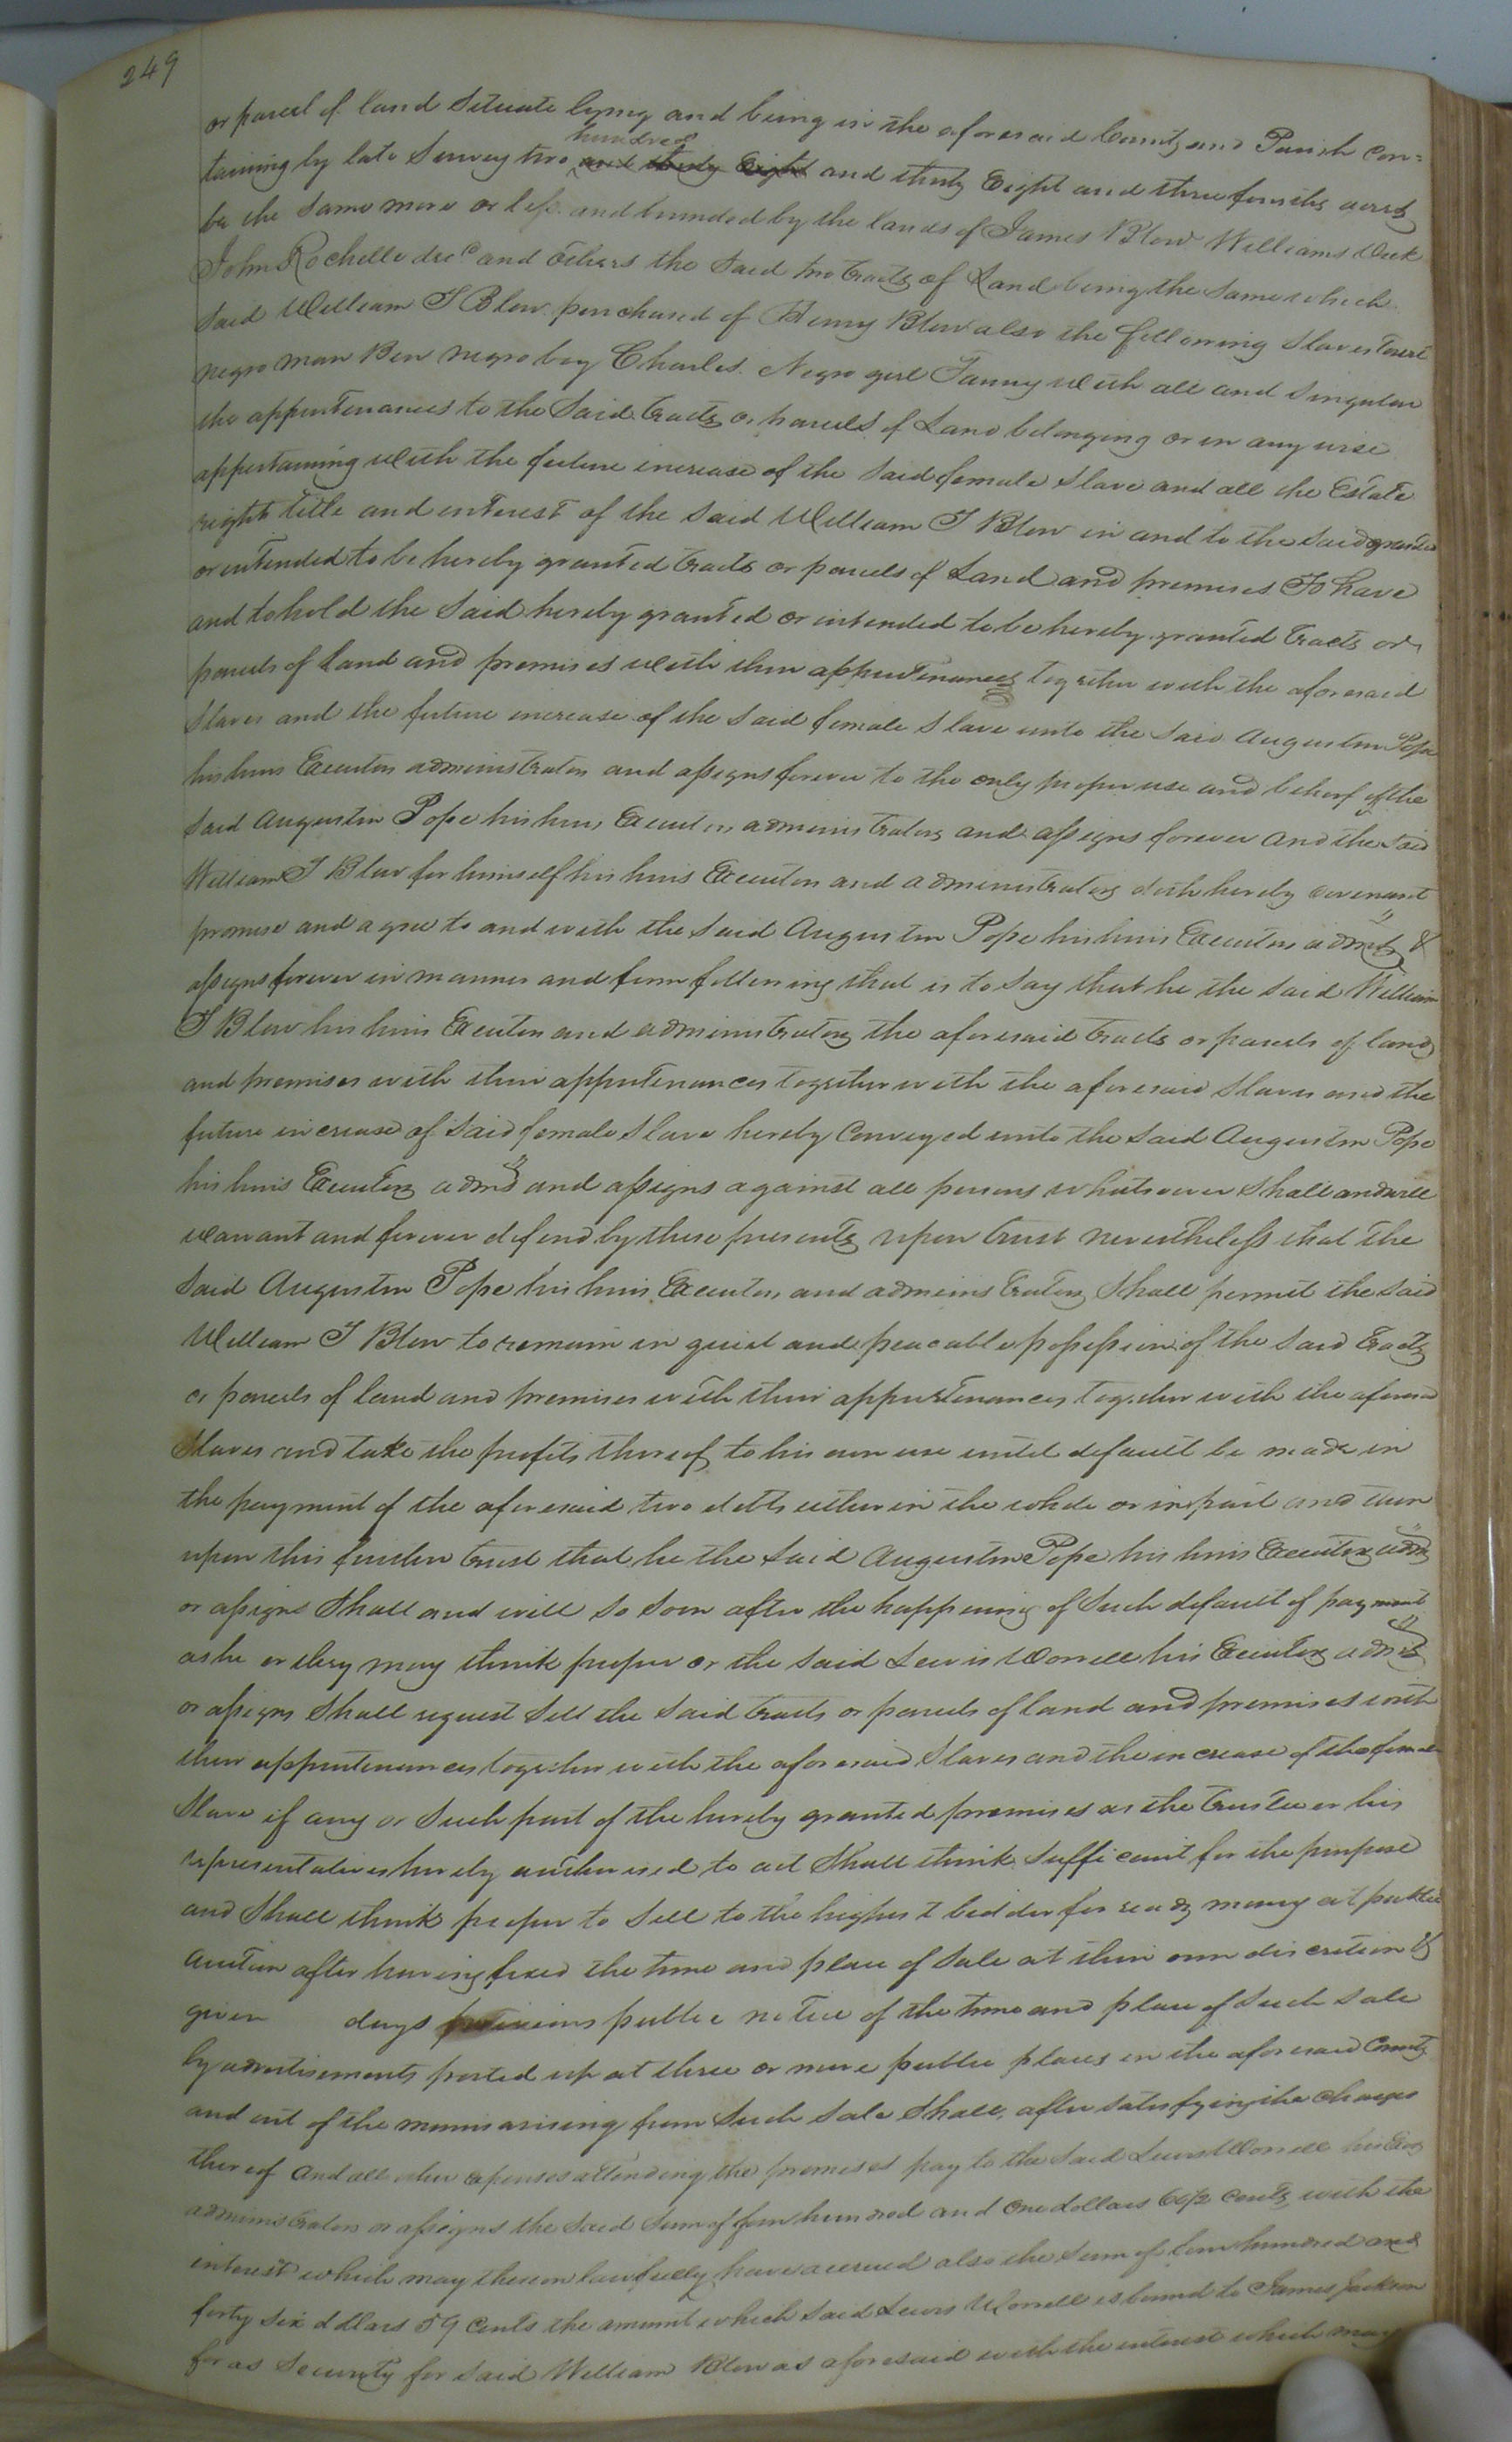 249
or parcel of land Situate lying and being in the aforesaid County and Parish con=
taining by late Survey two hundred and thirty Eight and thirty Eight and three fourths acres
be the Same more or less and bounded by the lands of James Blow Williams Dick
John Rochelle decd and others the Said two tracts of Land being the Same which
Said William I Blow purchased of Henry Blow also the following Slaves towit
negro man Ben negro boy Charles Negro girl Fanny with all and Singular
the appurtenances to the Said tracts or parcels of Land belonging or in any wise
appertaining with the future increase of the Said female Slave and all the Estate
right title and interest of the Said William I Blow in and to the Said granted
or intended to be hereby granted tracts or parcels of Land and premises To have
and to hold the Said hereby granted or intended to be hereby granted tracts or
parcels of Land and premises with their appurtenances together with the aforesaid
Slaves and the future increase of the Said female Slave unto the Said Augustin Pope
his heirs Executors administrators and assigns forever to the only proper use and behoof of the
Said Augustin Pope his heirs Executors administrators and assigns forever and the Said
William I Blow for himself his heirs Executors and administrators doth hereby covenant
promise and agree to and with the Said Augustin Pope his heirs Executors admrs &
assigns forever in manner and form following that is to Say that he the Said William
I Blow his heirs Executors and administrators the aforesaid tracts or parcels of land
and premises with their appurtenances together with the aforesaid Slaves and the
future increase of Said female Slave hereby Conveyed unto the Said Augustin Pope
his heirs Executors admrs and assigns against all persons whatsoever Shall and will
warant and forever defend by these presents upon trust nevertheless that the
Said Augustin Pope his heirs Executors and administrators Shall permit the Said
William I Blow to remain in quiet and peacable possession of the Said tracts
or parcels of land and premises with their appurtenances together with the aforesaid
Slaves and take the profits thereof to his own use until default be made in
the payment of the aforesaid two debts either in the whole or in part and then
upon this further trust that he the Said Augustin Pope his heirs Executors admrs
or assigns Shall and will so soon after the happening of Such default of payment
as he or they may think proper or the Said Lewis Worrell his Executors admrs
or assigns Shall request Sell the Said tracts or parcels of land and premises with
their appurtenances together with the aforesaid Slaves and the increase of the female
Slave if any or Such part of the hereby granted premises as the trustee or his
representatives hereby authorised to act Shall think Sufficient for the purpose
and Shall think proper to Sell to the highest bidder for ready money at public
auction after having fixed the time and place of Sale at their own discretion &
given days previous public notice of the time and place of Such Sale
by advertisements posted up at three or more public places in the aforesaid County
and out of the monies arising from Such Sale Shall, after satisfying the charges
thereof and all other expenses attending the premises pay to the Said Lewis Worrell his Exors
administrators or assigns the Said Sum of four hundred and one dollars 66½ cents with the
interest which may thereon lawfully have accrued also the Sum of four hundred and
forty Six dollars 59 cents the amount which Said Lewis Worrell is bound to James Jackson
for as Security for Said William Blow as aforesaid with the interest which may